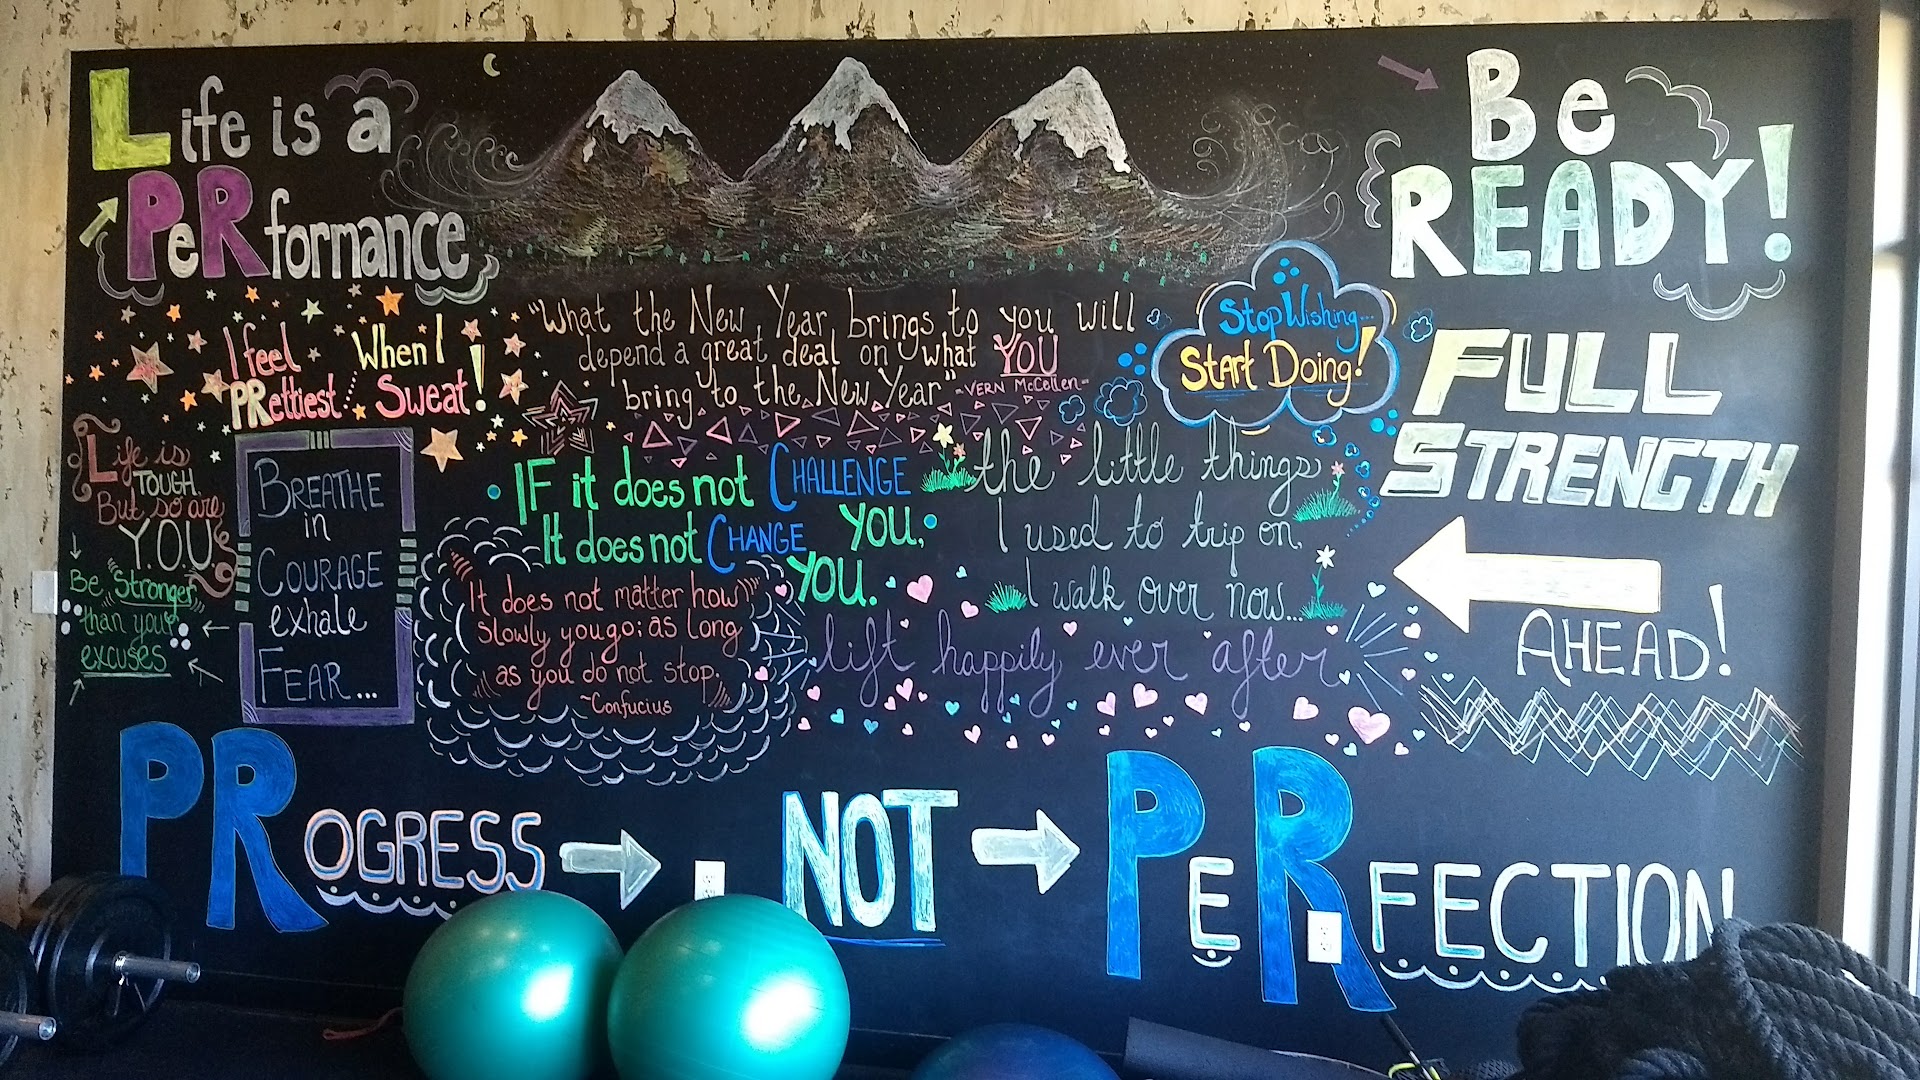 Life is a
PeRformance
Be
READY!
"What the New Year brings to you will
depend a great deal on what YOU
bring to the New Year"
-VERN McCellen-
Stop Wishing...
Start Doing!
I feel
PRettiest
When I
Sweat!
FULL
STRENGTH
AHEAD!
Life is
TOUGH.
But so are
Y.O.U
Be Stronger
than your
excuses
BREATHE
in
COURAGE
exhale
FEAR...
IF it does not CHALLENGE
YOU,
It does not CHANGE
YOU.
the little things
I used to trip on,
I walk over now...
"It does not matter how
slowly you go; as long
as you do not stop."
~Confucius
lift happily ever after
PROGRESS
NOT
PeRFECTION